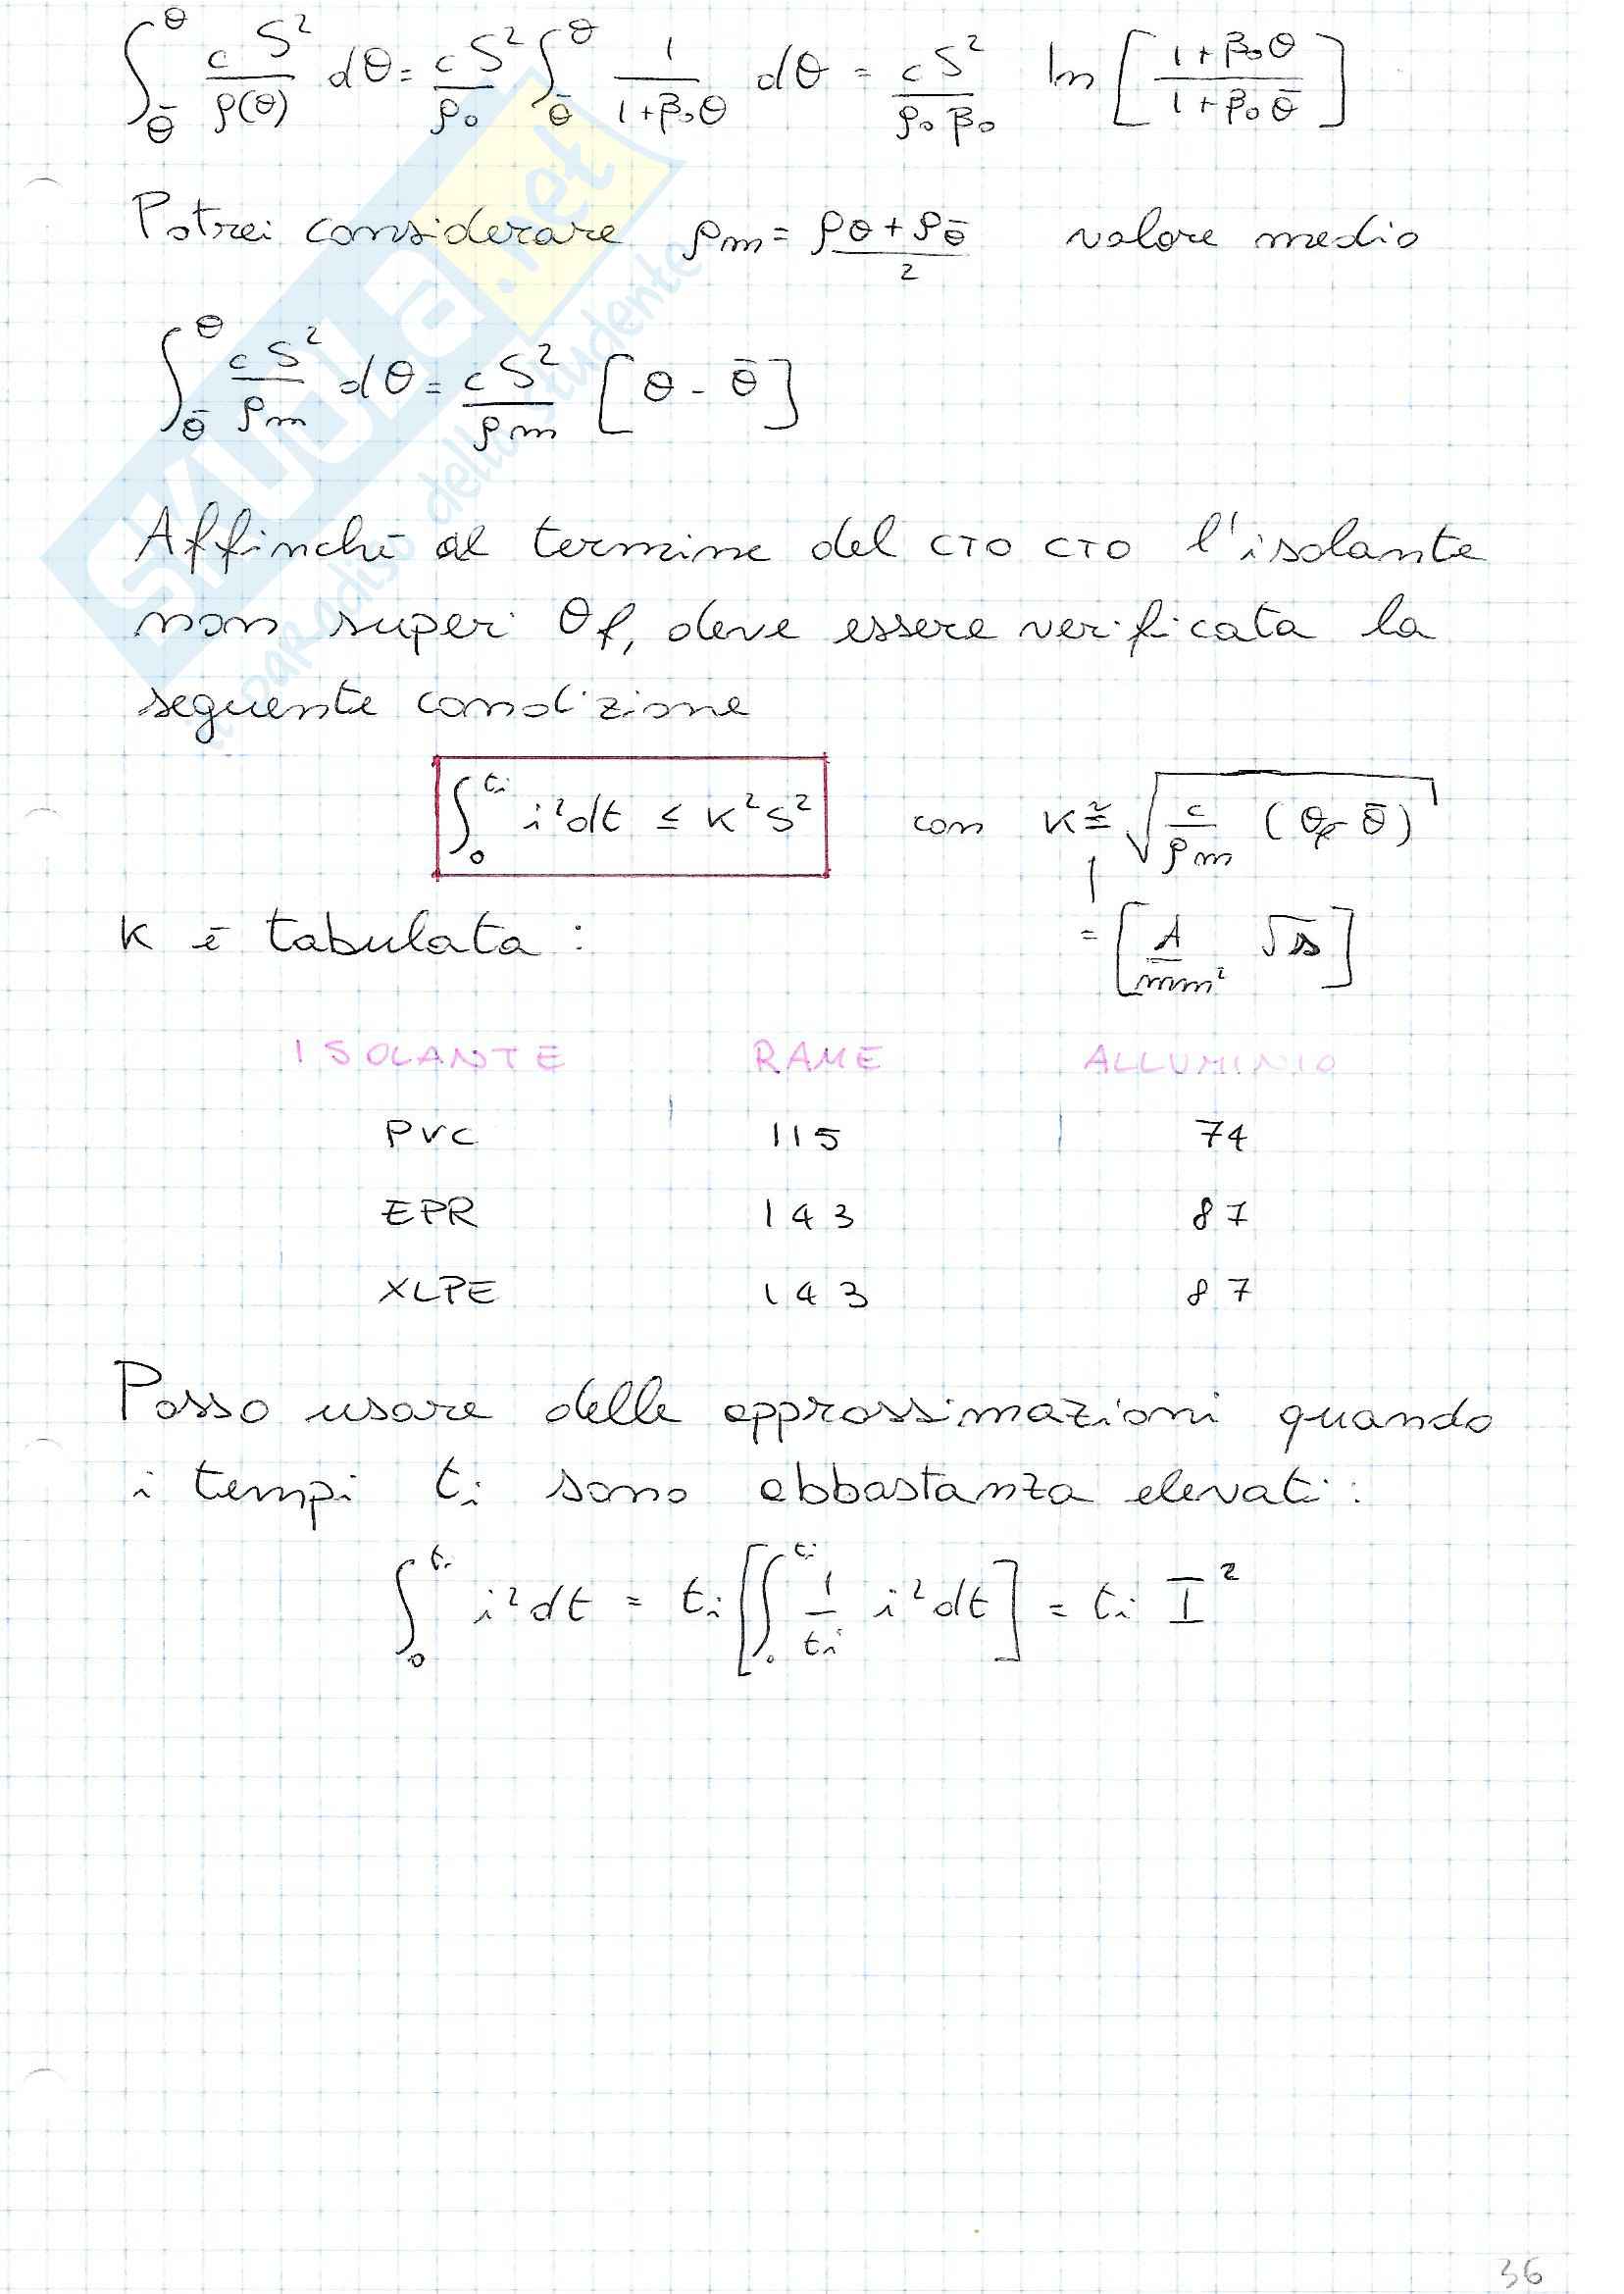 ∫_θ̄^θ c S²/ρ(θ) dθ = c S²/ρ₀ ∫_θ̄^θ 1/(1+β₀θ) dθ = c S²/(ρ₀ β₀) ln [ (1+β₀θ)/(1+β₀θ̄) ]
Potrei considerare ρm = (ρθ + ρθ̄)/2 valore medio
∫_θ̄^θ c S²/ρm dθ = c S²/ρm [ θ - θ̄ ]
Affinchè al termine del CTO CTO l'isolante
non superi θf, deve essere verificata la
seguente condizione
∫_0^ti i²dt ≤ K²S² con K ≅ √( c/ρm (θf-θ̄) )
= [ A/mm² √s ]
K è tabulata :
ISOLANTE RAME ALLUMINIO
PVC 115 74
EPR 143 87
XLPE 143 87
Posso usare delle approssimazioni quando
i tempi ti sono abbastanza elevati :
∫_0^ti i²dt = ti [ ∫_0^ti 1/ti i²dt ] = ti I²
36
SKUOLA.net
il paradiso dello studente